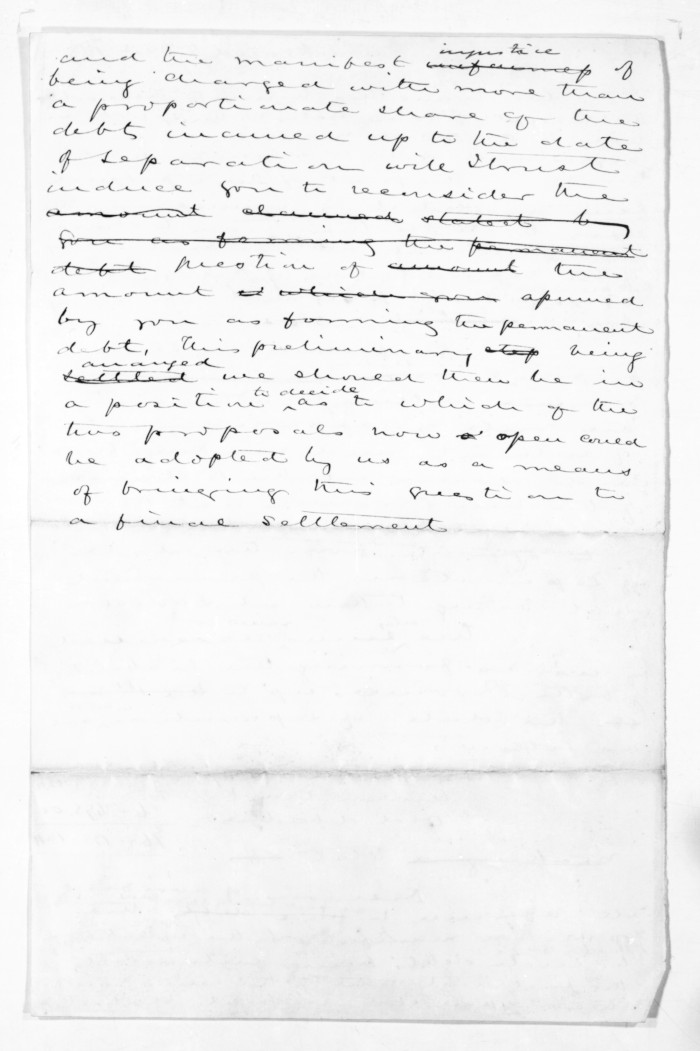 and the manifest injustice unfairness of
being charged with more than
a proportionate share of the
debts incurred up to the date
of separation will I trust
induce you to reconsider the
amount claimed stated by
you as forming the permanent
debt question of amount the
amount which you assumed
by you as forming the permanent
debt, this preliminary step being
arranged
settled we should then be in
a position to decide as to which of the
two proposals now open could
be adopted by us as a means
of bringing this question to
a final settlement